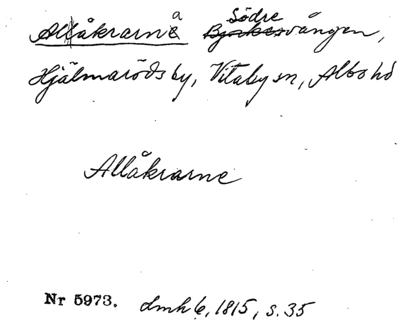 Södre
Allåkrarna Byakesvången,
Hjälmaröds by, Vitaby sn, Albo hd
Allåkrarne
Nr 5973. lmh 6, 1815, s. 35